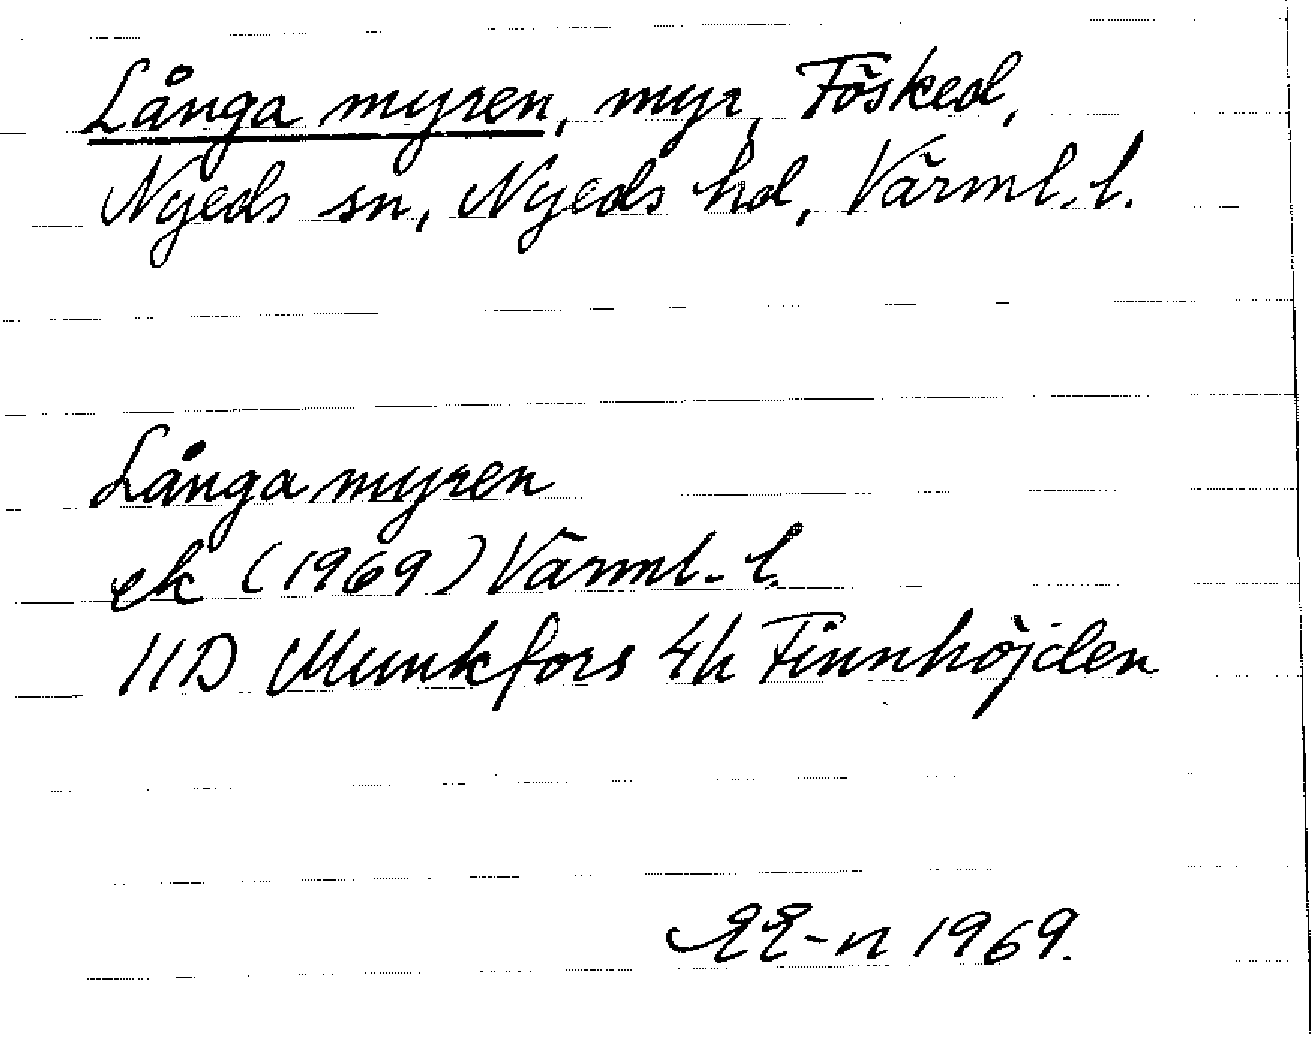 Långa myren, myr, Fösked,
Nyeds sn, Nyeds hd, Värml. l.
Långa myren
ek (1969) Värml. l.
11D Munkfors 4h Finnhöjden
EE-n 1969.